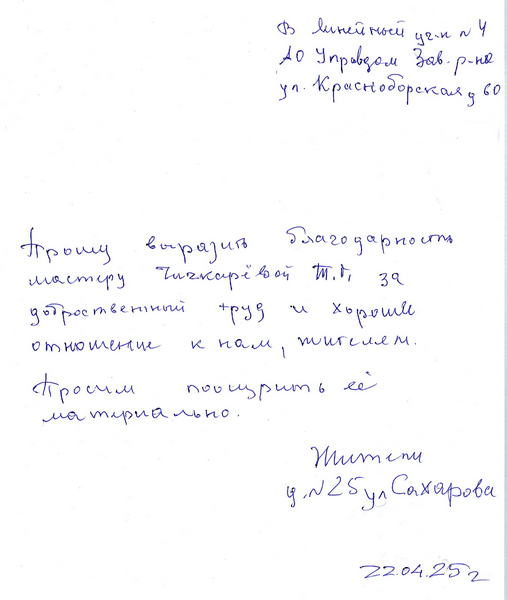 В Линейный уч-к №4
АО Управдом Зав. р-на
ул. Красноборская д 60
Прошу выразить благодарность
мастеру Чичкарёвой Т.Г. за
добрественный труд и хороше
отношение к нам, жителям.
Просим поощрить её
материально.
Жители
д. №25 ул Сахарова
22.04.25г